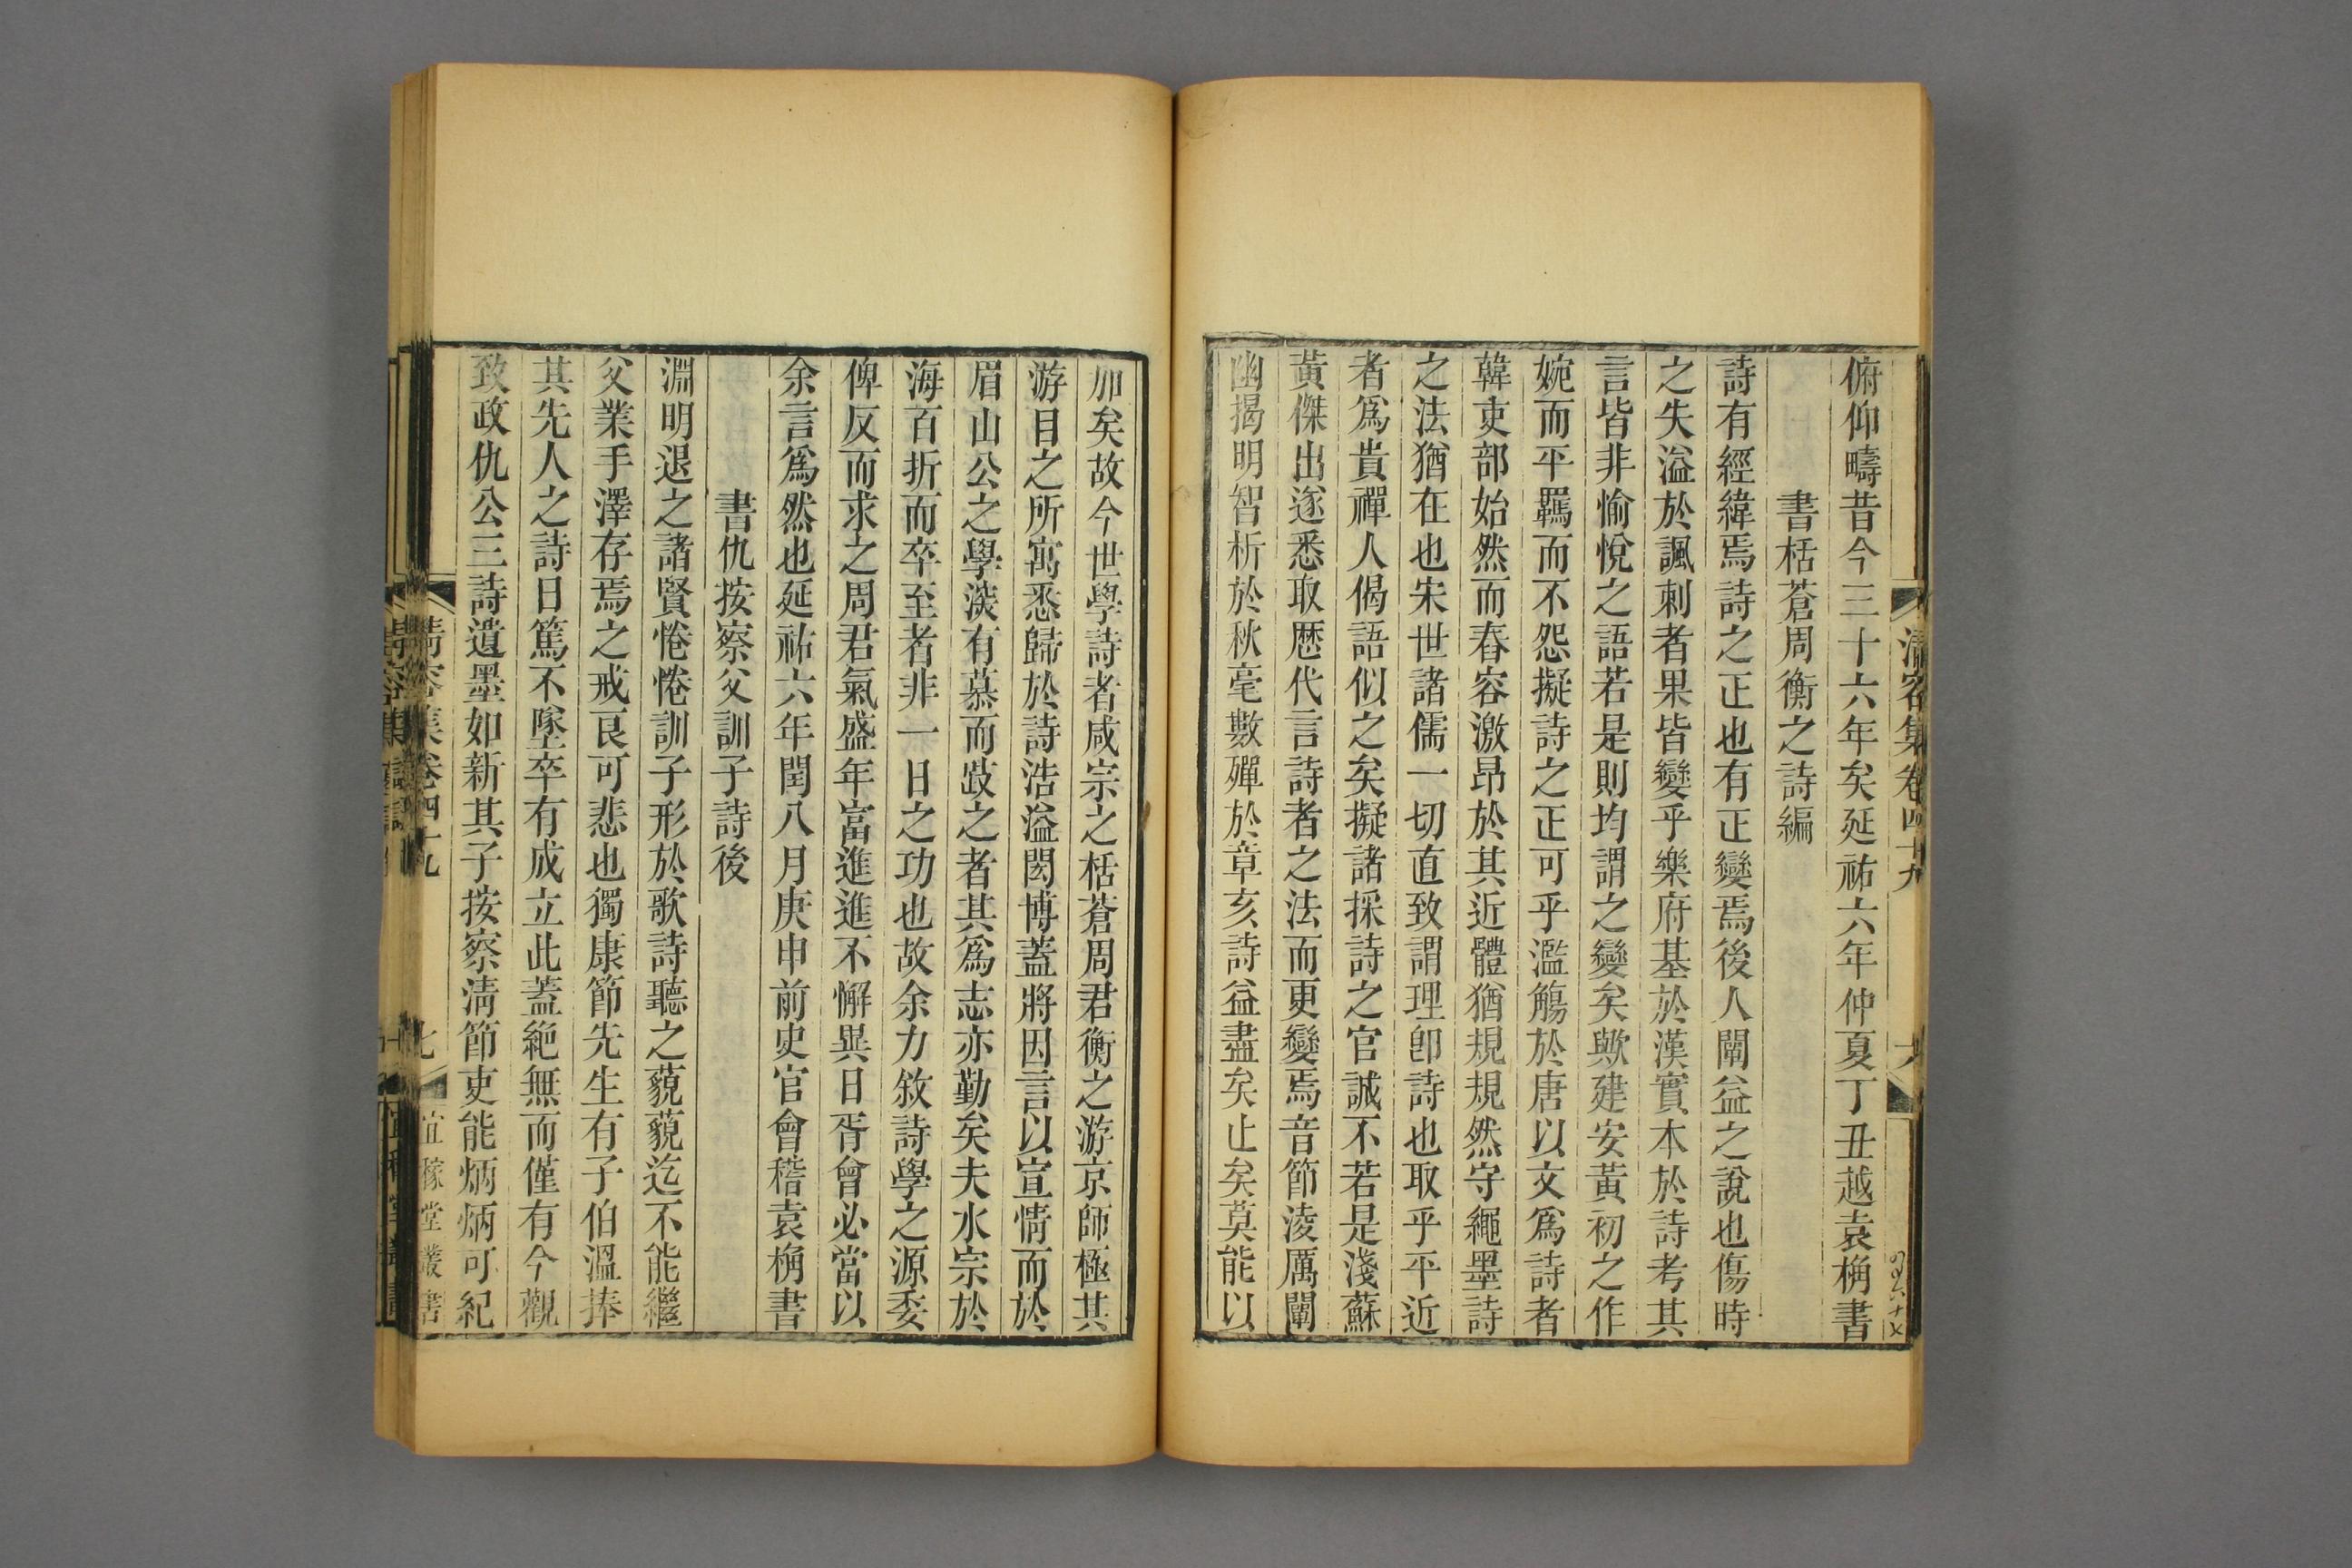 清容集卷四十九
六
俯仰疇昔今三十六年矣延祐六年仲夏丁丑越袁桷書
書栝蒼周衡之詩編
詩有經緯焉詩之正也有正變焉後人闡益之說也傷時
之失溢於諷刺者果皆變乎樂府基於漢實本於詩考其
言皆非愉悅之語若是則均謂之變矣歟建安黃初之作
婉而平羈而不怨擬詩之正可乎濫觴於唐以文爲詩者
韓吏部始然而舂容激昂於其近體猶規規然守繩墨詩
之法猶在也宋世諸儒一切直致謂理卽詩也取乎平近
者爲貴禪人偈語似之矣擬諸採詩之官誠不若是淺蘇
黃傑出遂悉取歷代言詩者之法而更變焉音節淩厲闡
幽揭明智析於秋毫數殫於章亥詩益盡矣止矣莫能以
加矣故今世學詩者咸宗之栝蒼周君衡之游京師極其
游目之所寓悉歸於詩浩溢閎博蓋將因言以宣情而於
眉山公之學深有慕而跂之者其爲志亦勤矣夫水宗於
海百折而卒至者非一日之功也故余力敘詩學之源委
俾反而求之周君氣盛年富進進不懈異日胥會必當以
余言爲然也延祐六年閏八月庚申前史官會稽袁桷書
書仇按察父訓子詩後
淵明退之諸賢惓惓訓子形於歌詩聽之藐藐迄不能繼
父業手澤存焉之戒良可悲也獨康節先生有子伯溫捧
其先人之詩日篤不墜卒有成立此蓋絕無而僅有今觀
致政仇公三詩遺墨如新其子按察淸節吏能炳炳可紀
清容集卷四十九
七
宜稼堂叢書